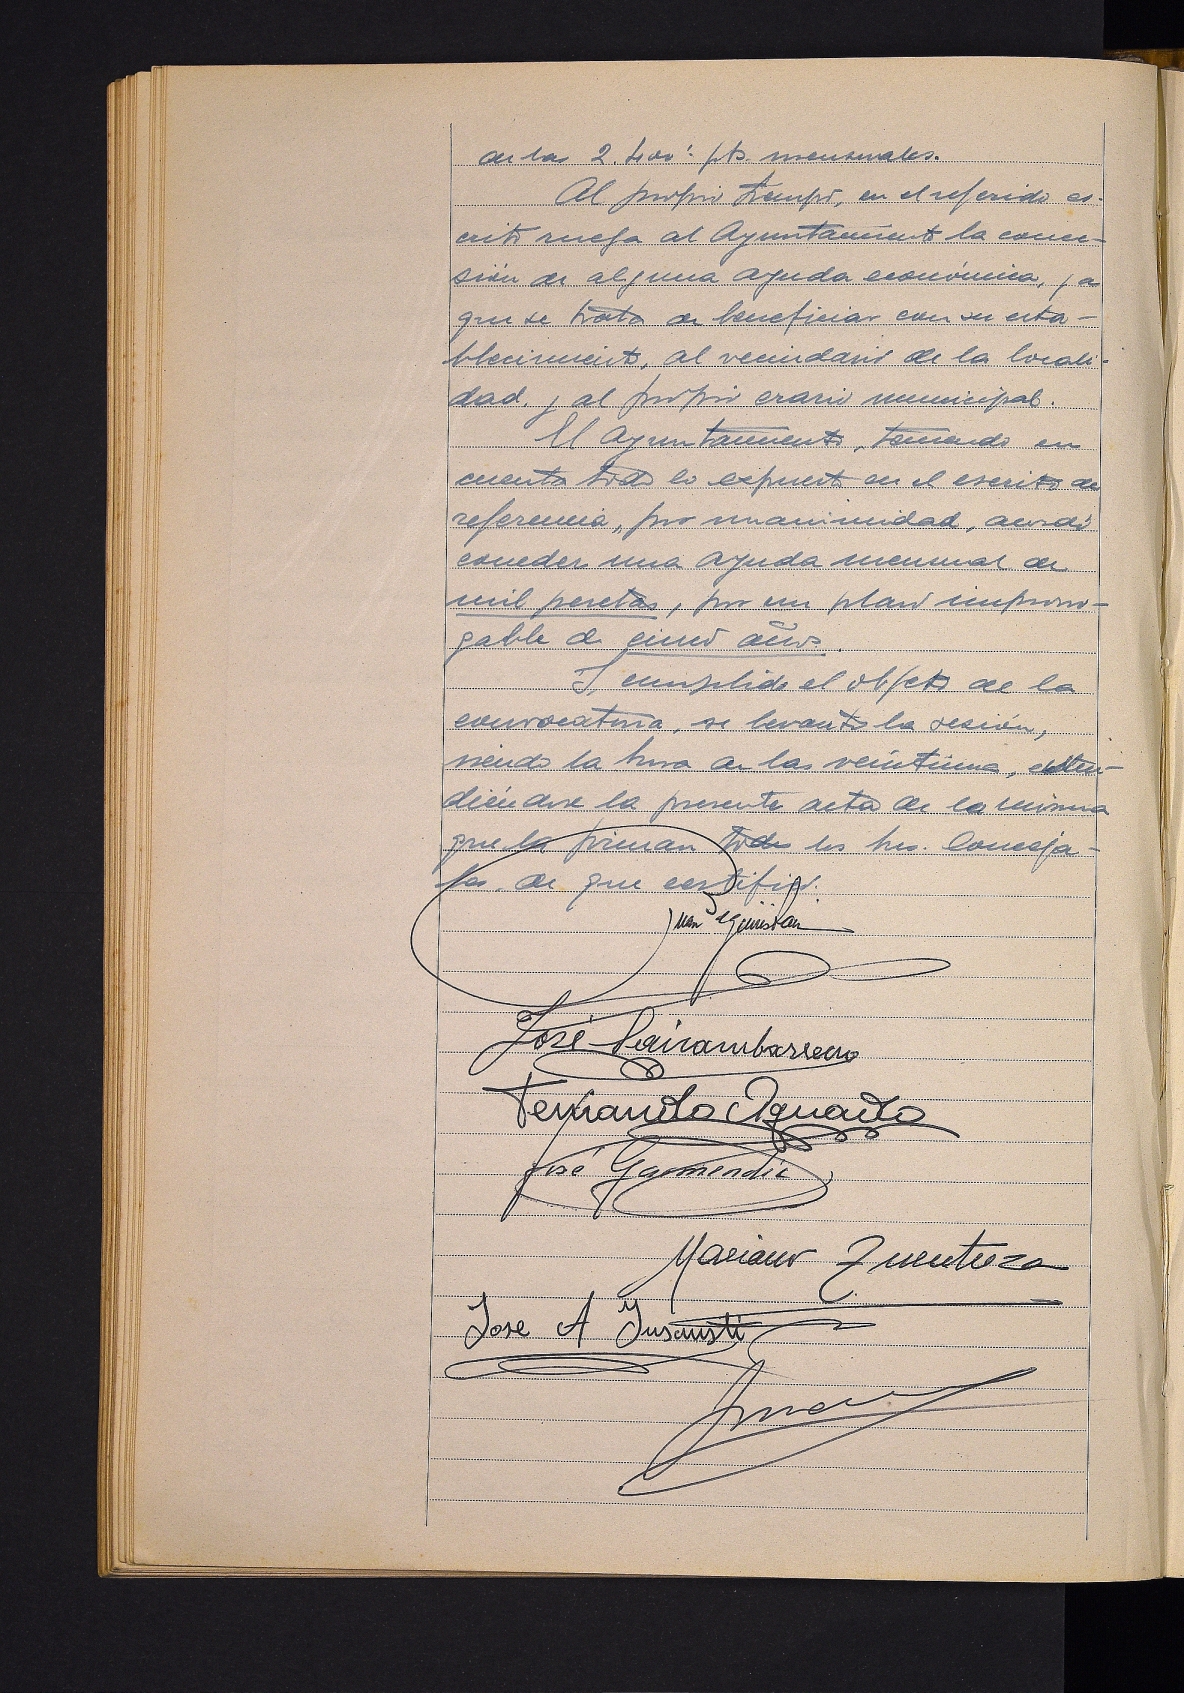 de las 2.400'- pts. mensuales.
Al propio tiempo, en el referido es-
crito ruega al Ayuntamiento la conce-
sión de alguna ayuda económica, ya
que se trata de beneficiar con su esta-
blecimiento, al vecindario de la locali-
dad, y al propio erario municipal.
El Ayuntamiento, teniendo en
cuenta todo lo expuesto en el escrito de
referencia, por unanimidad, acordó
conceder una ayuda mensual de
mil pesetas, por un plazo improrro-
gable de cinco años.
Y, cumplido el objeto de la
convocatoria, se levantó la sesión,
siendo la hora de las veintiuna, exten-
diéndose la presente acta de la misma
que la firman todos los Sres. Conceja-
les, de que certifico.
Juan
José
Fernando Aguado
José Garmendia
Mariano
Jose A Insausti